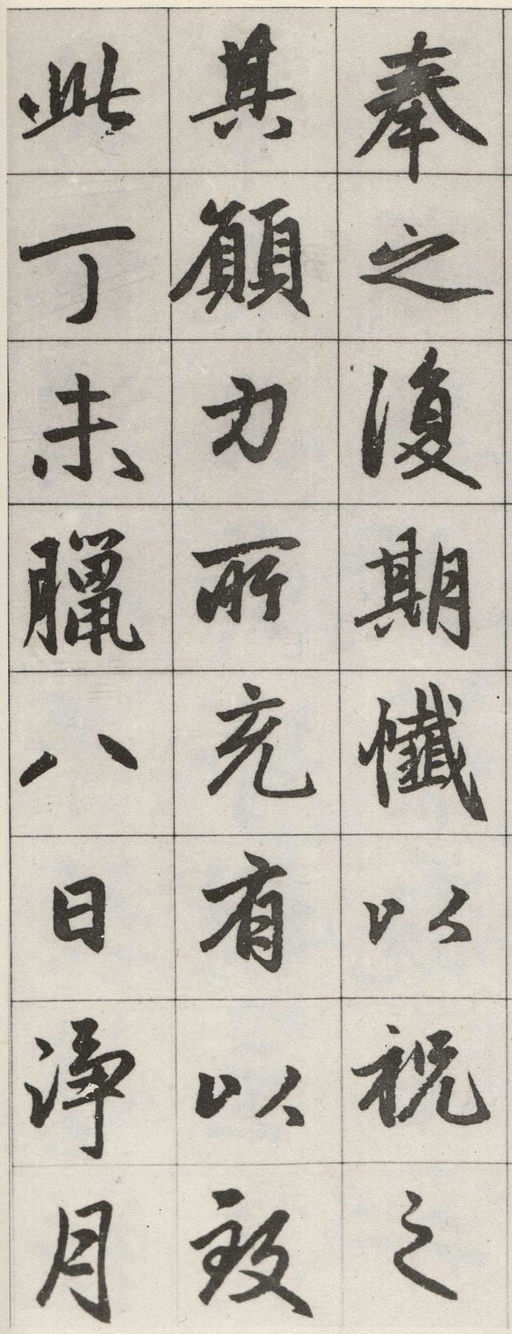 奉之復期懺以祝之
其願力所充有以致
此丁未臘八日淨月